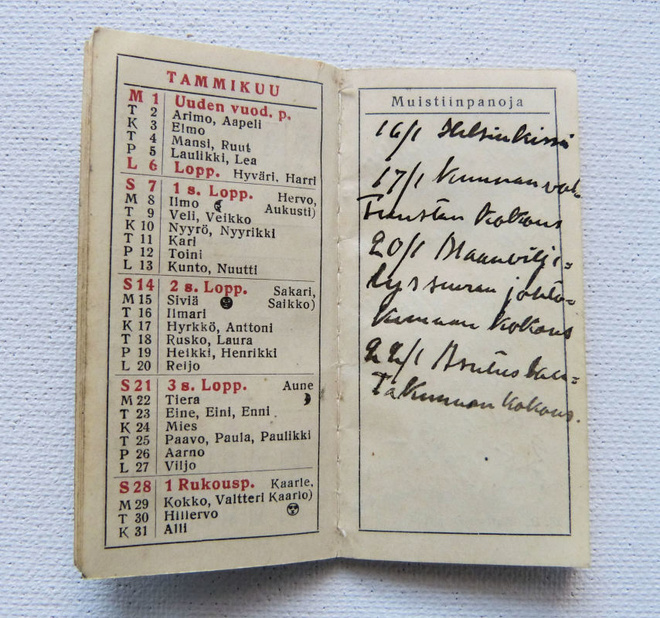 TAMMIKUU
M 1 Uuden vuod. p.
T 2 Arimo, Aapeli
K 3 Elmo
T 4 Mansi, Ruut
P 5 Laulikki, Lea
L 6 Lopp. Hyväri. Harri
S 7 1 s. Lopp. Hervo,
M 8 Ilmo Aukusti)
T 9 Veli, Veikko
K 10 Nyyrö, Nyyrikki
T 11 Kari
P 12 Toini
L 13 Kunto, Nuutti
S 14 2 s. Lopp. Sakari,
M 15 Siviä Saikko)
T 16 Ilmari
K 17 Hyrkkö, Anttoni
T 18 Rusko, Laura
P 19 Heikki, Henrikki
L 20 Reijo
S 21 3 s. Lopp. Aune
M 22 Tiera
T 23 Eine, Eini, Enni
K 24 Mies
T 25 Paavo, Paula, Paulikki
P 26 Aarno
L 27 Viljo
S 28 1 Rukousp. Kaarle,
M 29 Kokko, Valtteri Kaarlo)
T 30 Hillervo
K 31 Alli
Muistiinpanoja
16/1 Helsinkissä
17/1 Kunnanval
tuustan Kokous
20/1 Maanvilje=
lysseuran johto=
kunnan Kokous
22/1 Asutuslau=
takunnan kokous.